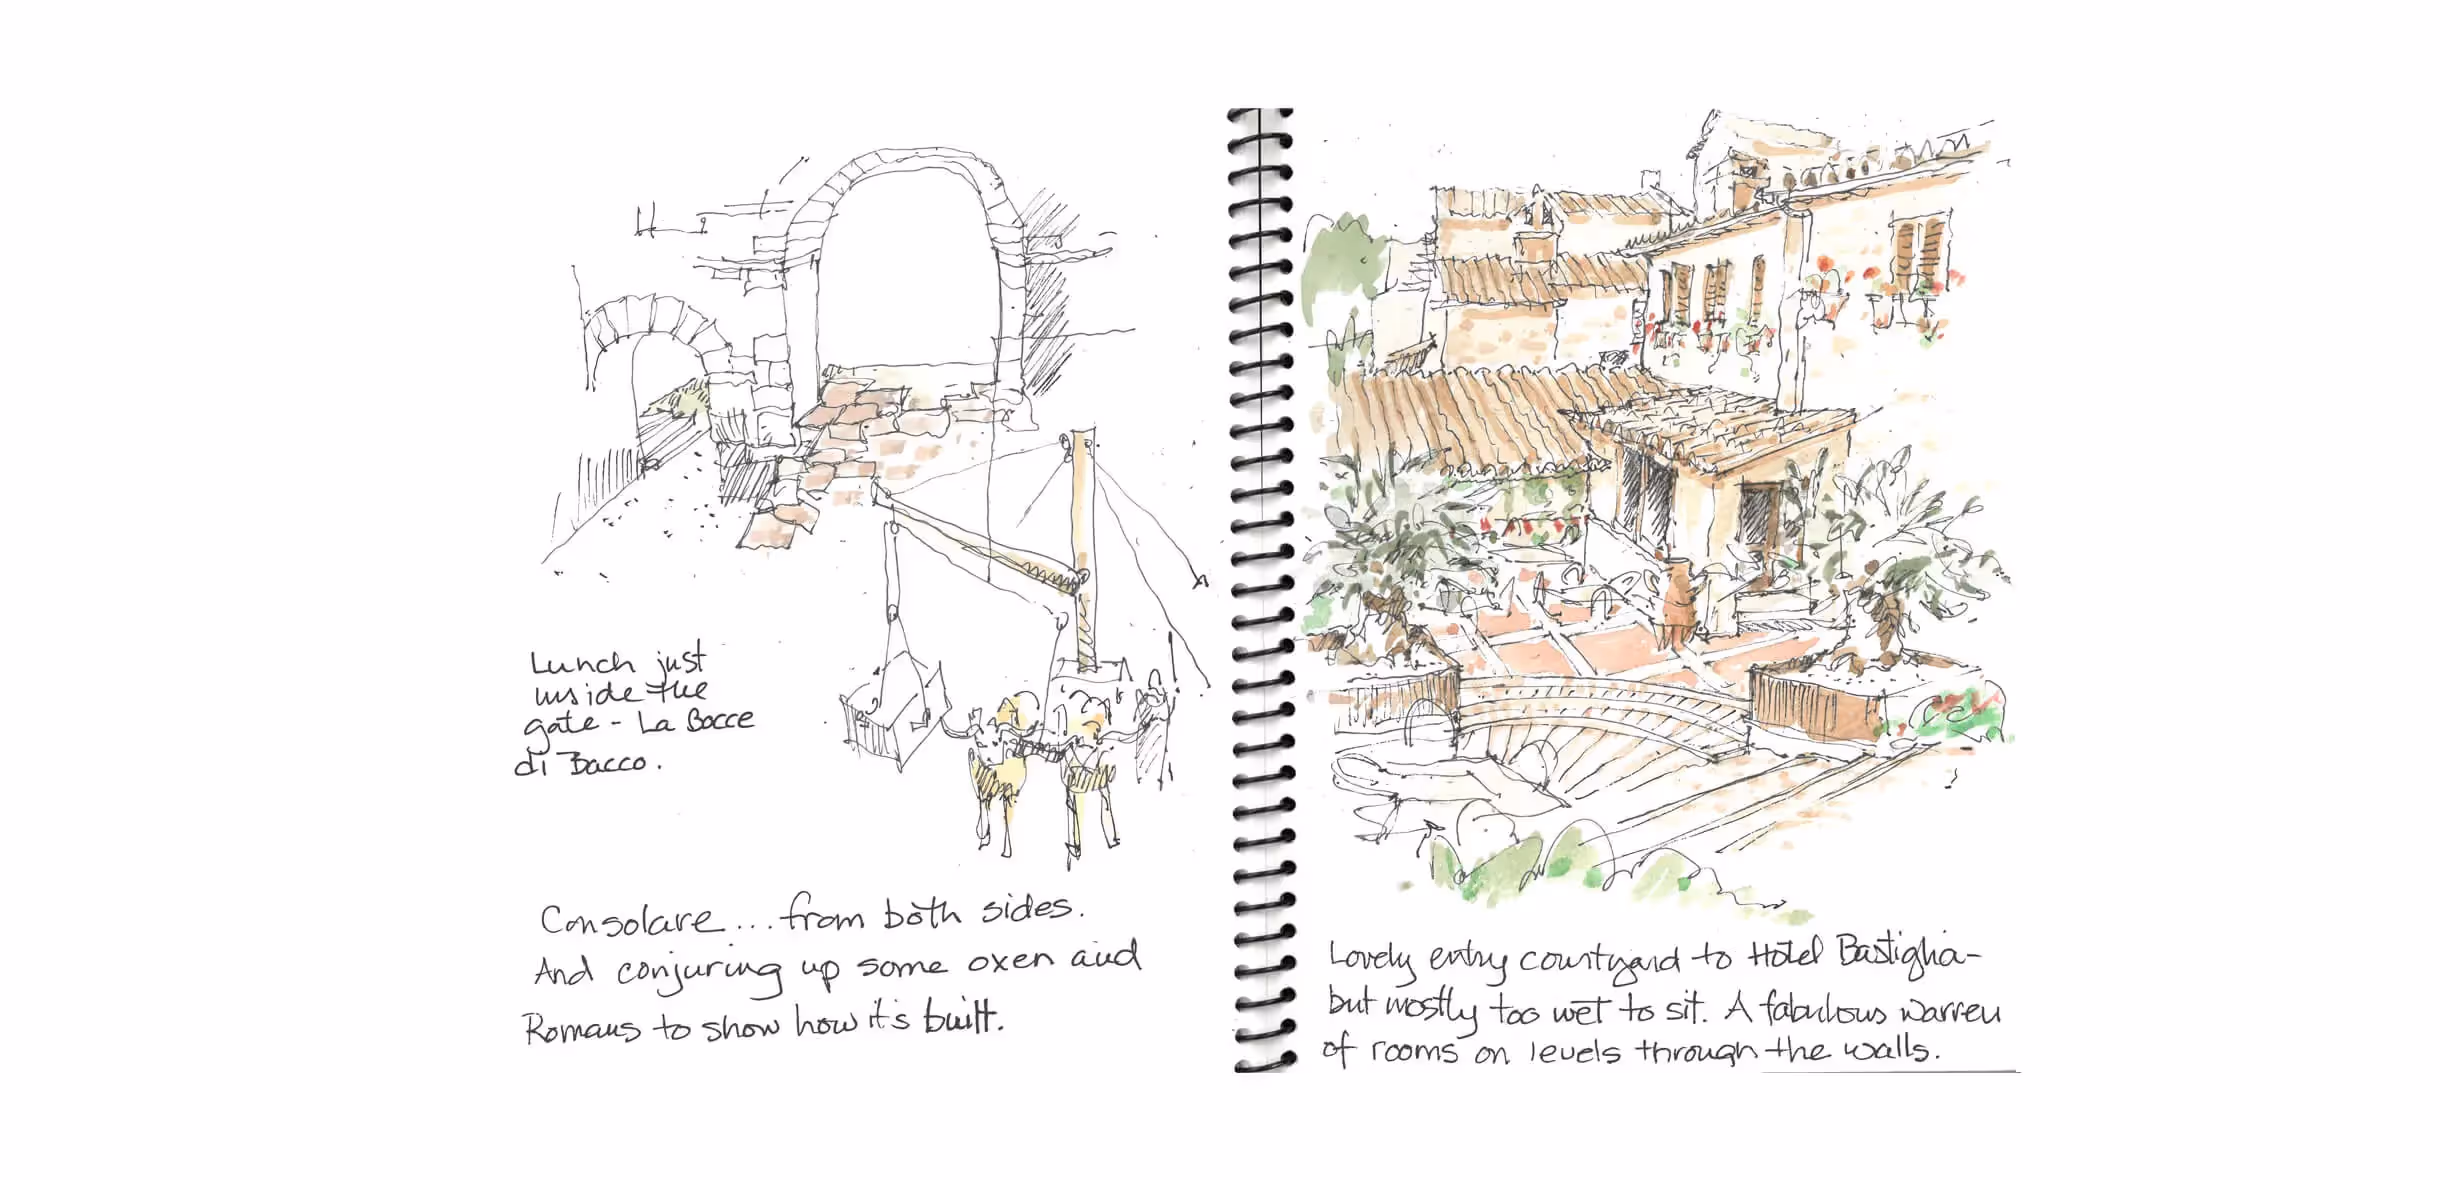 Lunch just
inside the
gate - La Bocce
di Bacco.
Consolare... from both sides.
And conjuring up some oxen and
Romans to show how it's built.
Lovely entry courtyard to Hotel Bastiglia -
but mostly too wet to sit. A fabulous warren
of rooms on levels through the walls.